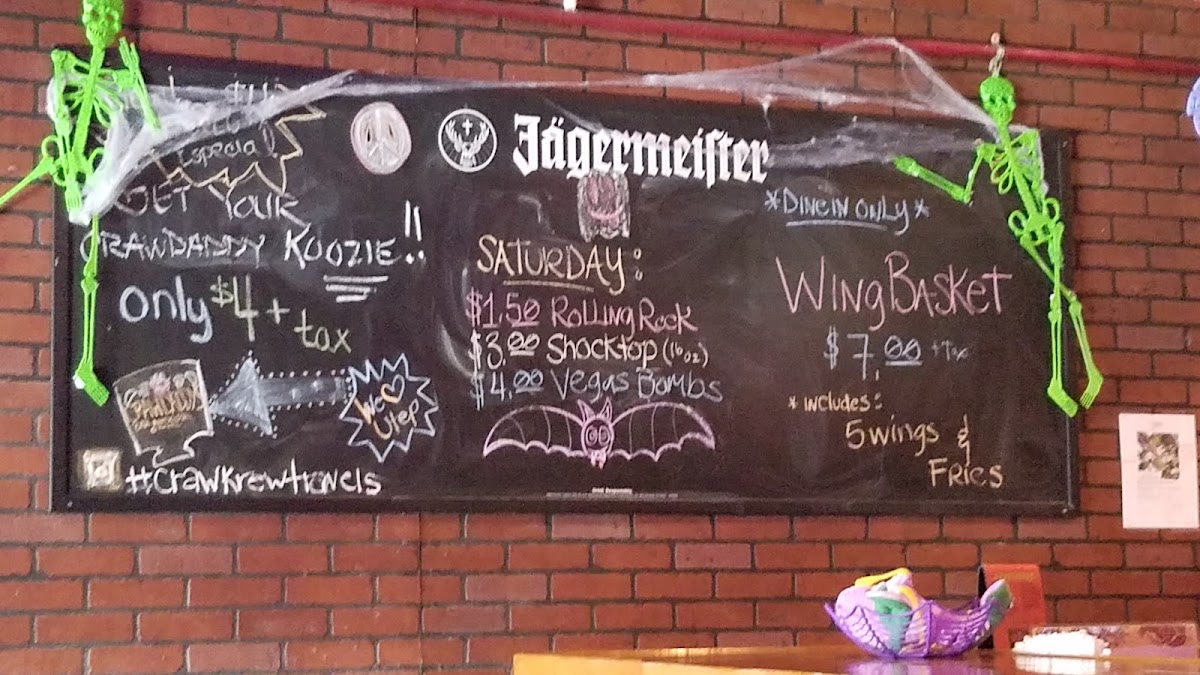 special
GET YOUR
CRAWDADDY KOOZIE!!
only $4 + tax
We ♡ Ulep
#crawkrewtravels
Jägermeister
SATURDAY:
$1.50 Rolling Rock
$3.00 Shocktop (16oz)
$4.00 Vegas Bombs
*DINE IN ONLY*
WING BASKET
$7.00 + Tax
* INCLUDES:
5 wings &
FRIES